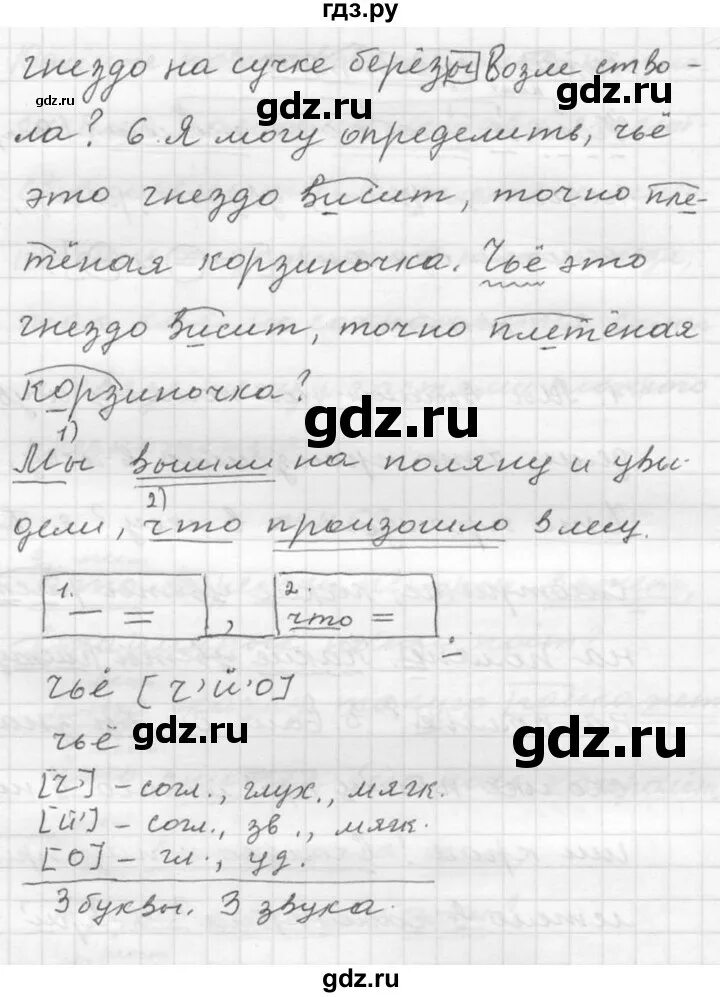 гдз.ру
гнездо на сучке берёзы Возле ство-
gdz.ru
gdz.ru
ла? 6. Я могу определить, чьё
gdz.ru
это гнездо висит, точно пле-
тёная корзиночка. Чьё это
гнездо висит, точно плетёная
корзиночка?
gdz.ru
1)
Мы вышли на поляну и уви-
2)
дели, что произошло в лесу.
gdz.ru
gdz.ru
1. — = , 2. что = .
чьё [ч'й'о]
чьё gdz.ru
gdz.ru
[ч'] – согл., глух., мягк.
[й'] – согл., зв., мягк.
[о] – гл., уд.
gdz.ru
gdz.ru
3 буквы. 3 звука.
gdz.ru